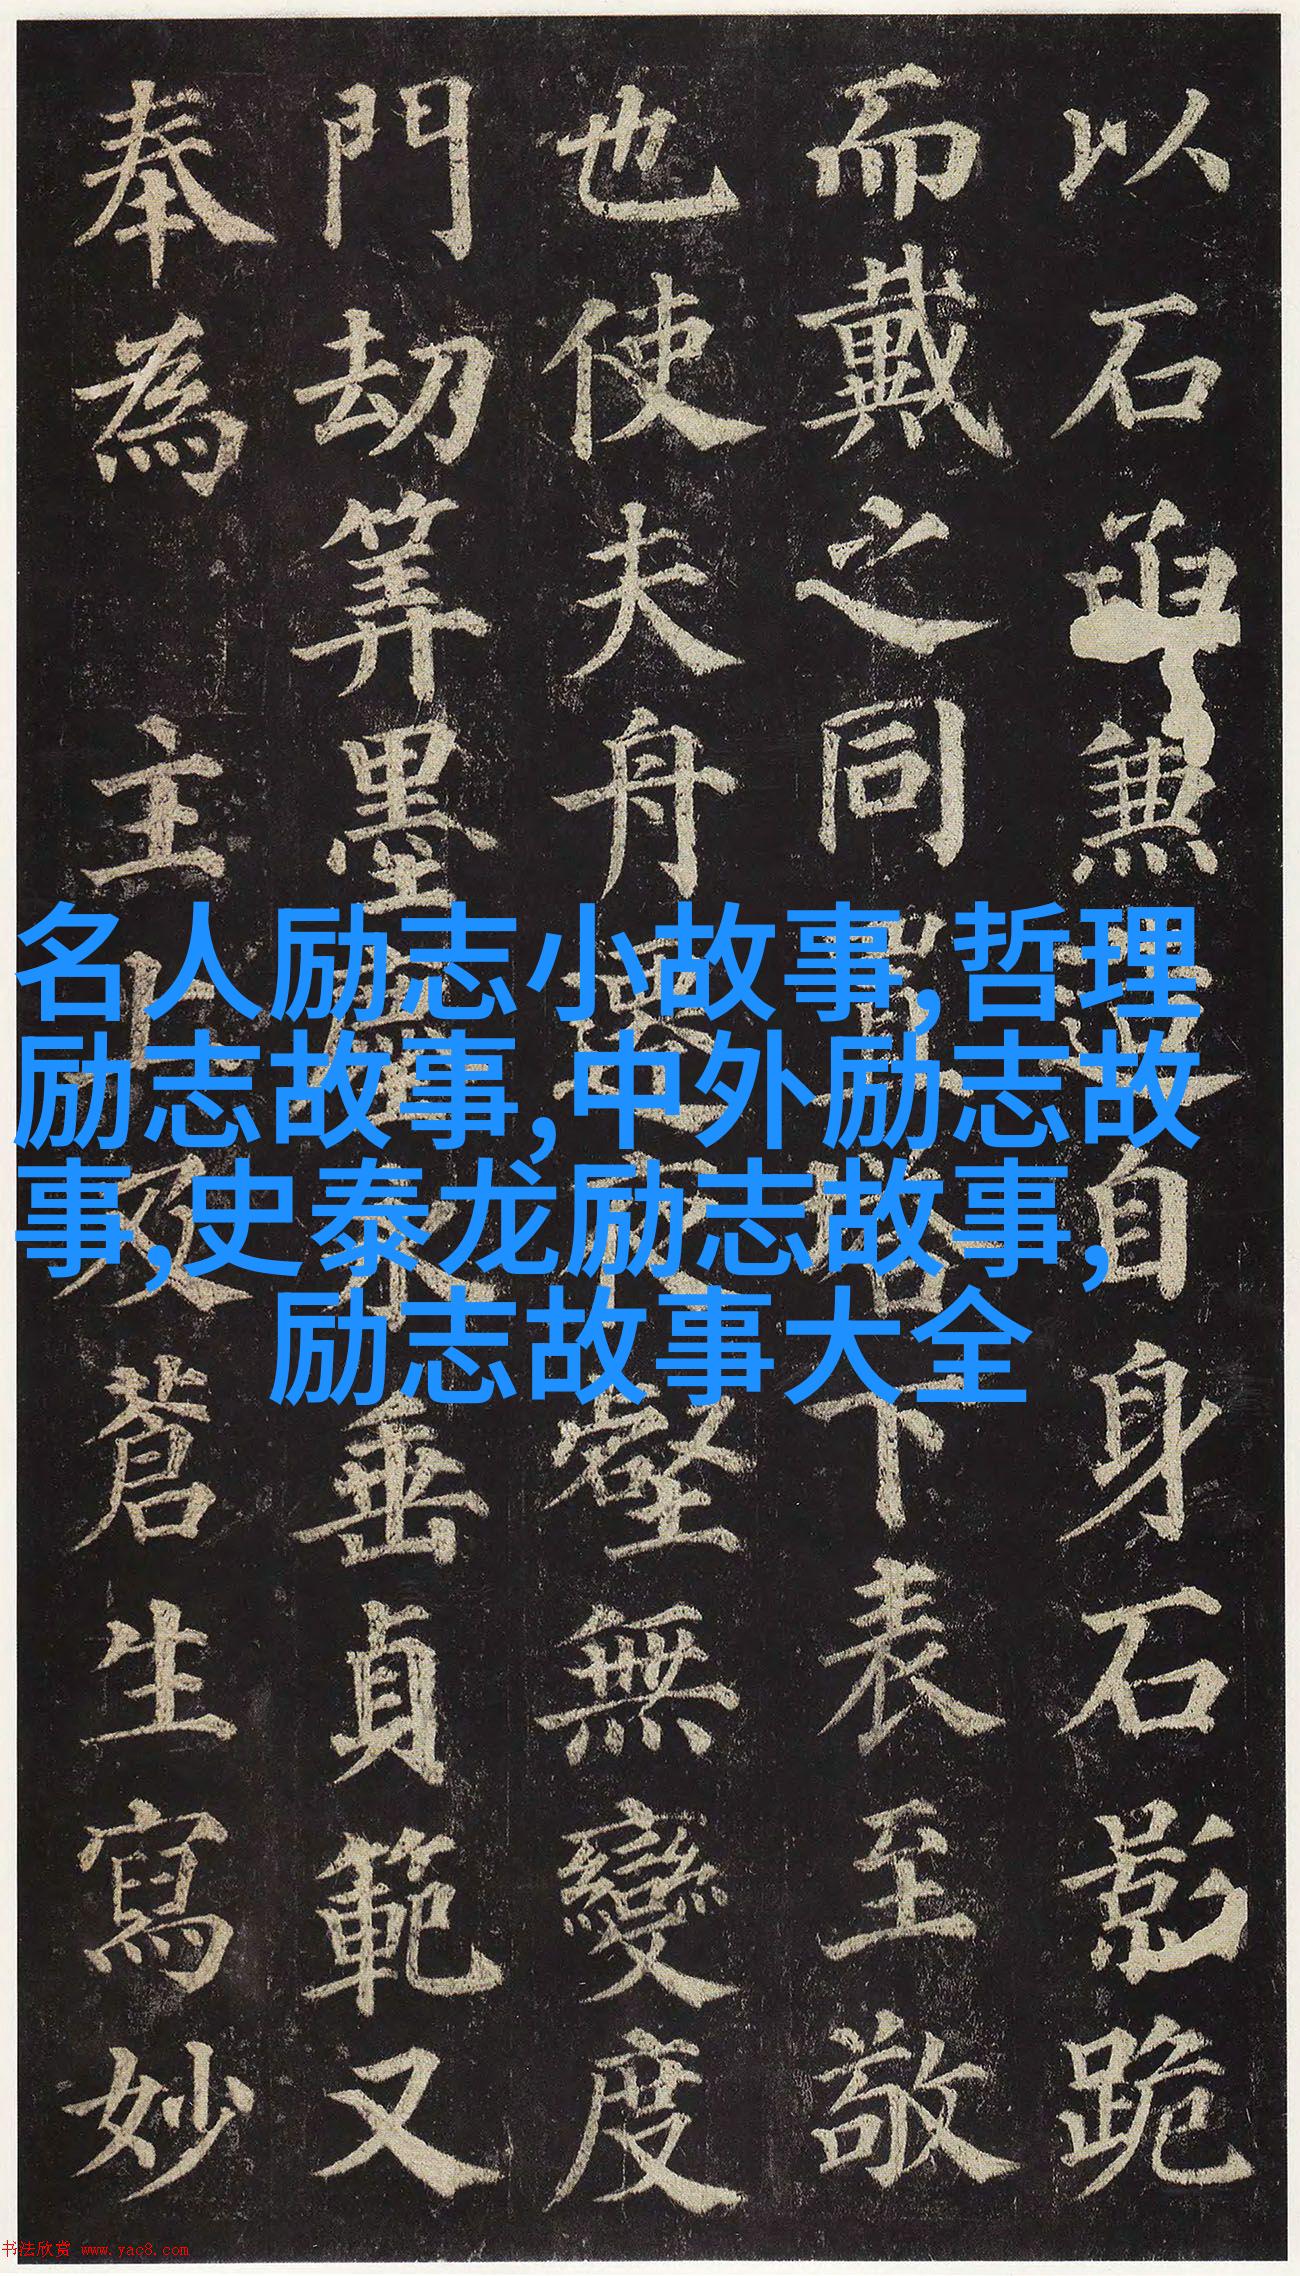 以石函兼造自身石影跪
而戴之同置塔下表至敬
也使夫舟遷夜壑無變度
門劫筭墨塵永垂貞範又
奉為主上及蒼生寫妙
名人励志小故事,哲理
励志故事,中外励志故
事,史泰龙励志故事,
励志故事大全
书法欣赏 www.yac8.com